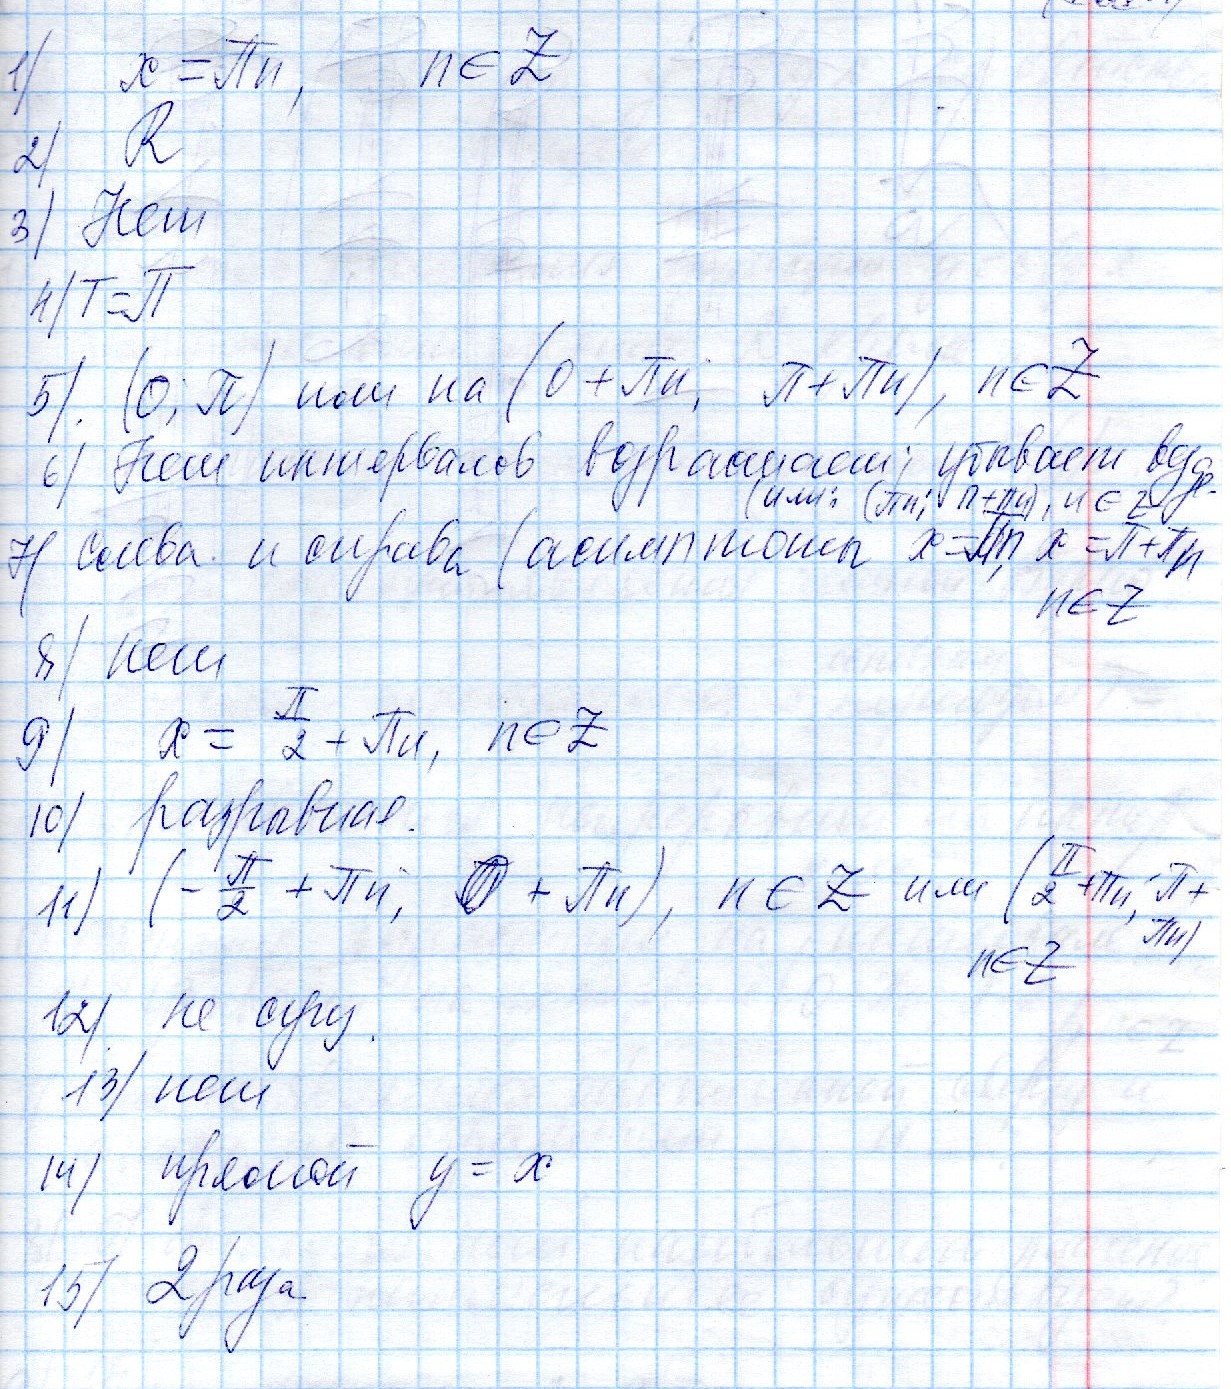 1/ x = Πn, n∈Z
2/ R
3/ Нет
4/ T=Π
5/. (0; π) или на (0 + Πn; π + Πn), n∈Z
6/ Нет интервалов возрастаст; убывает везде.
(или: (Πn; π+πn), n∈Z
7/ слева и справа (асимптоты x=Πn, x = π+πn
n∈Z
8/ нет
9/ x = π/2 + Πn, n∈Z
10/ разрывная.
11) (-π/2 + Πn; 0 + Πn), n∈Z или (π/2 + πn; π+
πn)
n∈Z
12/. не сущ.
13/ нет
14) прямой y = x
15/. 2 раза